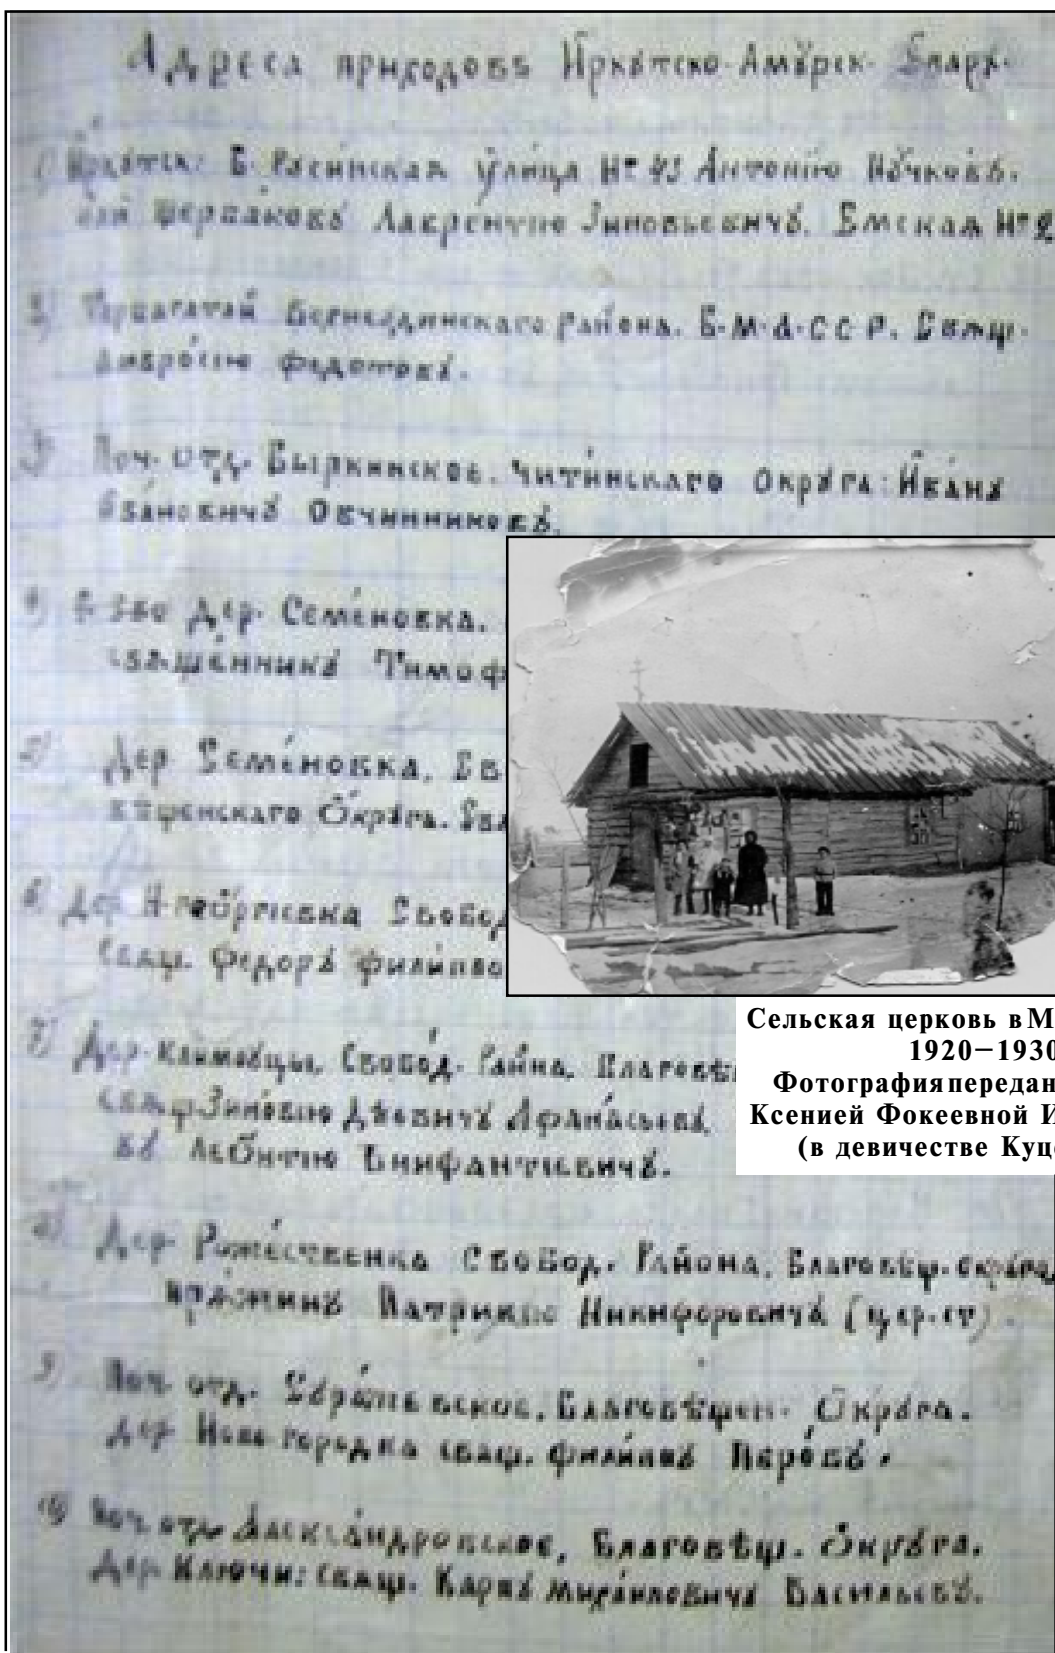 Адреса приходовъ Иркꙋтско-Амꙋрск. Епарх.
Иркꙋтск: Б. улица № 43 Антонію
Лаврентію Зиновьевичꙋ. Емская №
2) Тарбагатай Верхнеудинскаго района. Б-М-А-С-С-Р. Свящ.
Амвросію Федотовꙋ.
3) Поч. отд. Быркинское. Читинскаго Округа: Иванꙋ
Ивановичꙋ Овчинниковꙋ.
4) Дер. Семеновка.
священникꙋ Тимоф
5) Дер Семеновка, Св
вѣщенскаго Округа. Свя
6) Дер Н-георгиевка Свобод
свящ. Федорꙋ Филипо
7) Дер. Климоуцы, Свобод. Раина, Благовѣ
свящ. Зиновію Афанасьевꙋ
Енифантіевичꙋ.
8) Дер Рожественка Свобод. Района, Благовѣщ. округа
Патрикію Никифоровичꙋ (цер. ст).
9) Поч. отд. Благовѣщен. Округа.
дер Ново-городка свящ. Филипꙋ Перовꙋ.
10) Поч. отд. Александровское, Благовѣщ. Округа.
Дер Ключи: свящ. Карпꙋ Михаиловичꙋ Васильевꙋ.
Сельская церковь в М
1920–1930
Фотография передан
Ксенией Фокеевной И
(в девичестве Куц